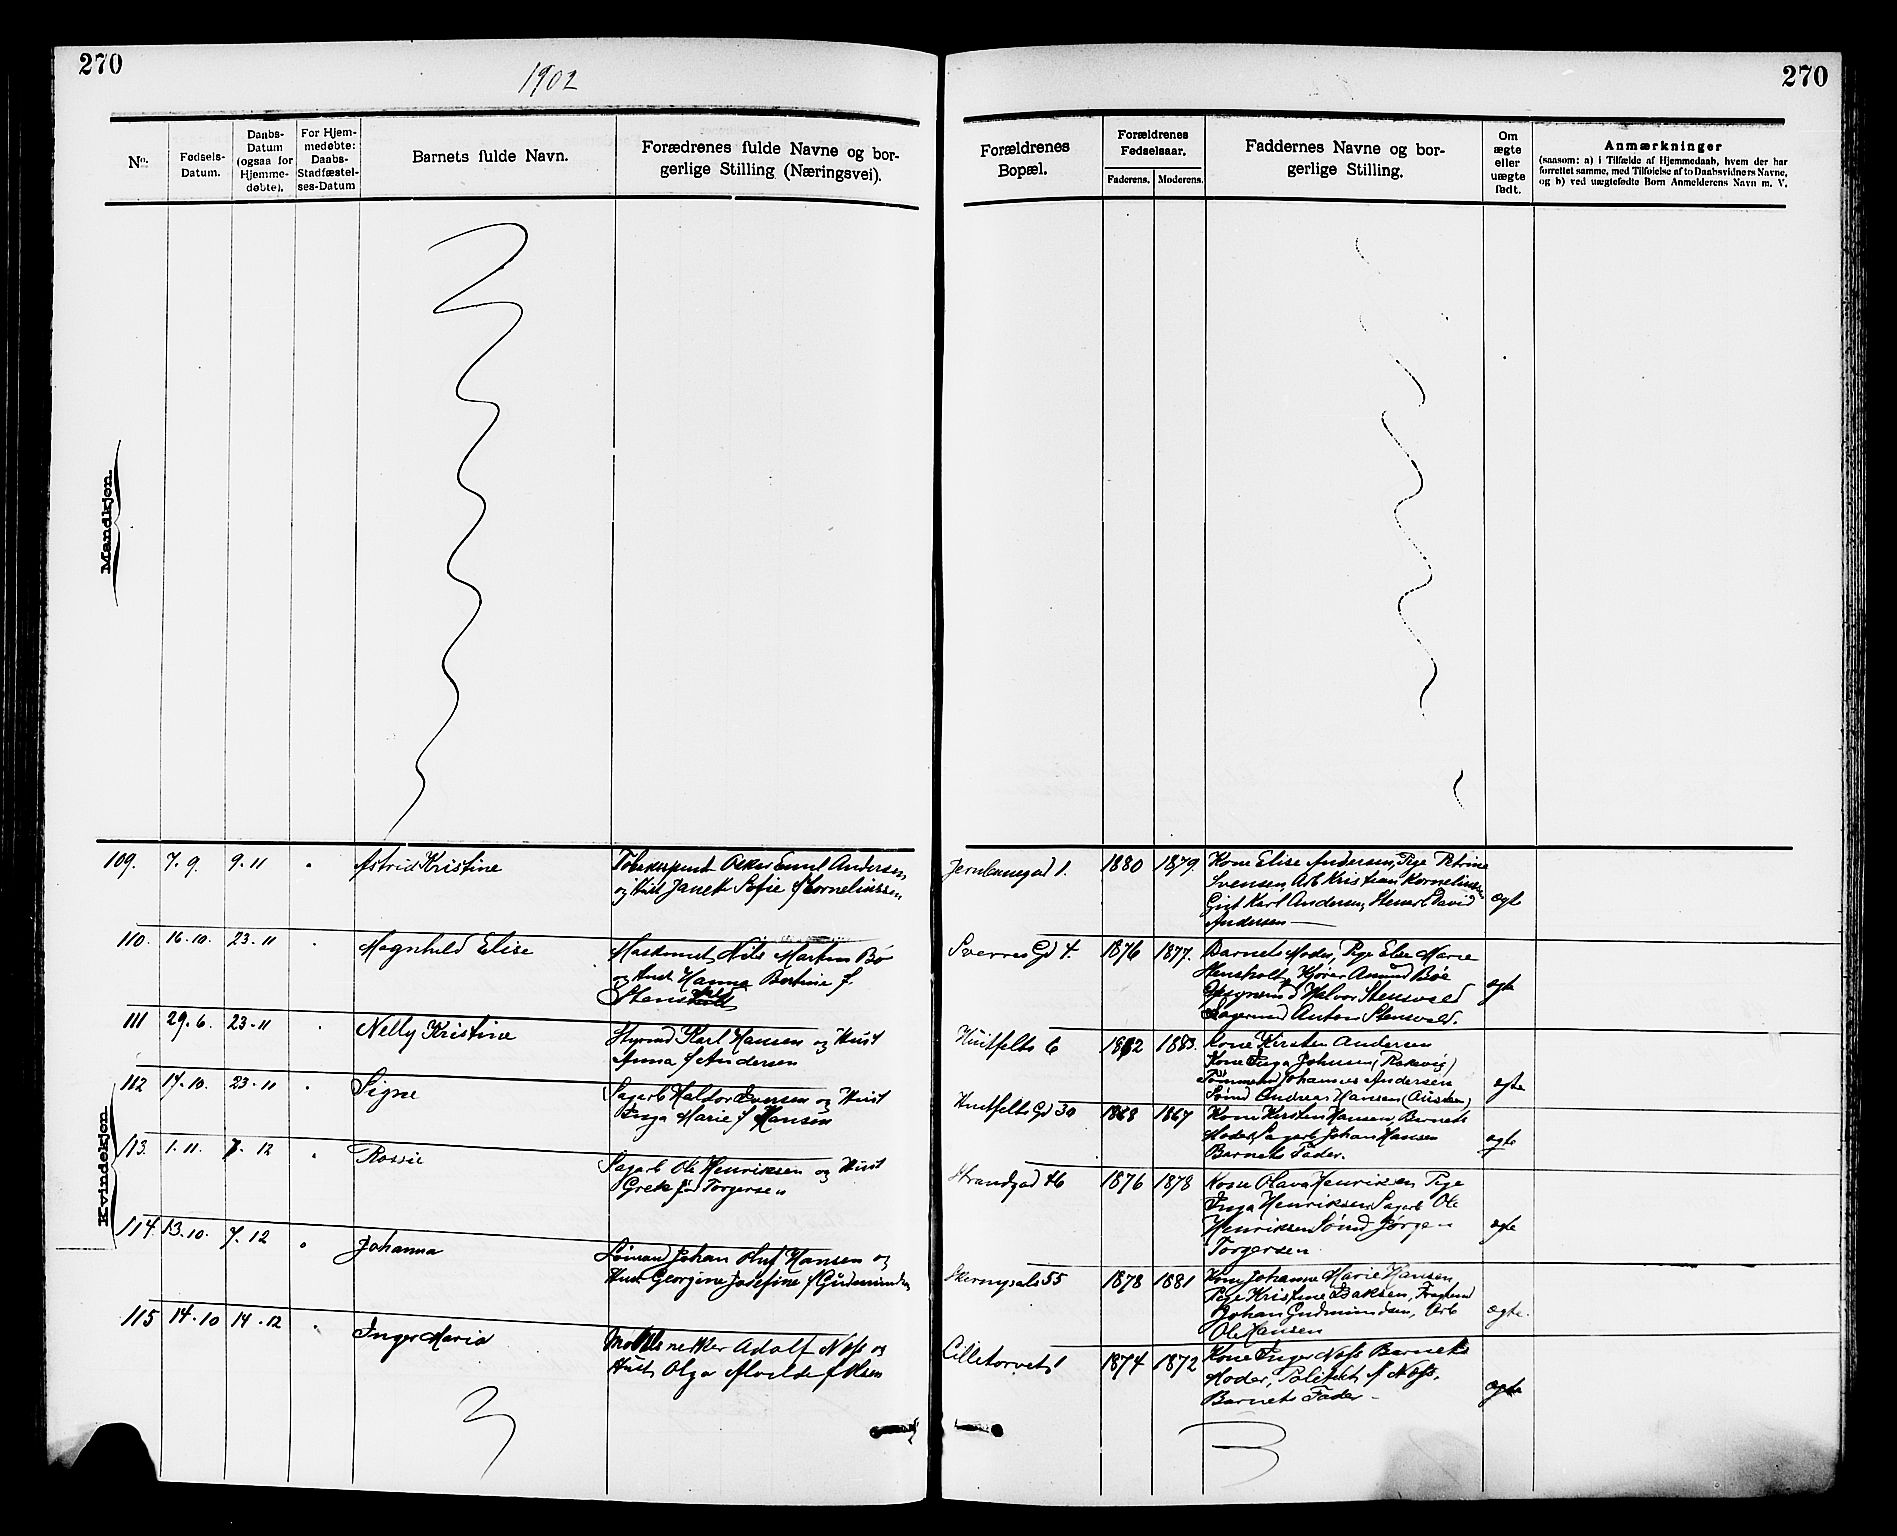 270
1902
270
No.
Fødsels-
Datum.
Daabs-
Datum
(ogsaa for
Hjemme-
døbte).
For Hjem-
medøbte:
Daabs-
Stadfæstel-
ses-Datum
Barnets fulde Navn.
Forædrenes fulde Navne og bor-
gerlige Stilling (Næringsvei).
Forældrenes
Bopæl.
Forældrenes
Fødselsaar.
Faderens. Moderens.
Faddernes Navne og bor-
gerlige Stilling.
Om
ægte
eller
uægte
født.
Anmærkninger
(saasom: a) i Tilfælde af Hjemmedaab, hvem der har
forrettet samme, med Tilføielse af to Daabsvidners Navne,
og b) ved uægtefødte Børn Anmelderens Navn m. V.
Mandkjøn.
Kvindekjøn
109. 7.9. 9.11 Astrid Kristine
Emil Andersen
og Hust Janet Sofie f Korneliussen
1. 1880 1879.
Kone Elise Andersen, Pige Petrine
Svensen, Arb Kristian Korneliussen
Karl Andersen, David
Andersen
ægte
110. 16.10. 23.11 Magnhild Elise
Nils Martin Bø
og Hust Hanna Bertine f
Sverres Gd 4. 1876 1877.
Barnets Moder, Pige Else Marie
Asmund Bøe
Halvor Stensvold
Anton Stensvold.
ægte
111 29.6. 23.11 Nelly Kristine
Styrmd Karl Hansen og Hust
Anna f Andersen
Huitfelts 6 1883.
Kone Kirsten Andersen
Kone Inga Johnsen
Tømmermd Johannes Andersen
Sømd Andreas Hansen
ægte
112 17.10. 23.11 Signe
Sagarb Haldor Ivensen og Hust
Inga Marie f Hansen
Huitfelts Gd 30 1868 1867
Kone Kirsten Hansen, Barnets
Moder, Sagarb Johan Hansen
Barnets Fader.
ægte
113. 1.11. 7.12
Sagarb Ole Henriksen og Hust
Torgersen
Strandgad 46 1876 1878
Kone Olava Henriksen Pige
Inga Henriksen Sagarb Ole
Henriksen Sømd Jørgen
Torgersen
ægte
114. 13.10. 7.12 Johanna
Sømand Johan Oluf Hansen og
Hust Georgine Josefine f Gudmundsen
55 1878 1881
Kone Johanne Marie Hansen
Pige Kristine
Johan Gudmundsen, Arb
Ole Hansen
ægte.
115 14.10 14.12 Inger Maria
Adolf Næss og
Hust Olga Alvilde f Olsen
Lilletorvet 1 1874 1872
Kone Inger Næss Barnets
Moder, Næss,
Barnets Fader
ægte